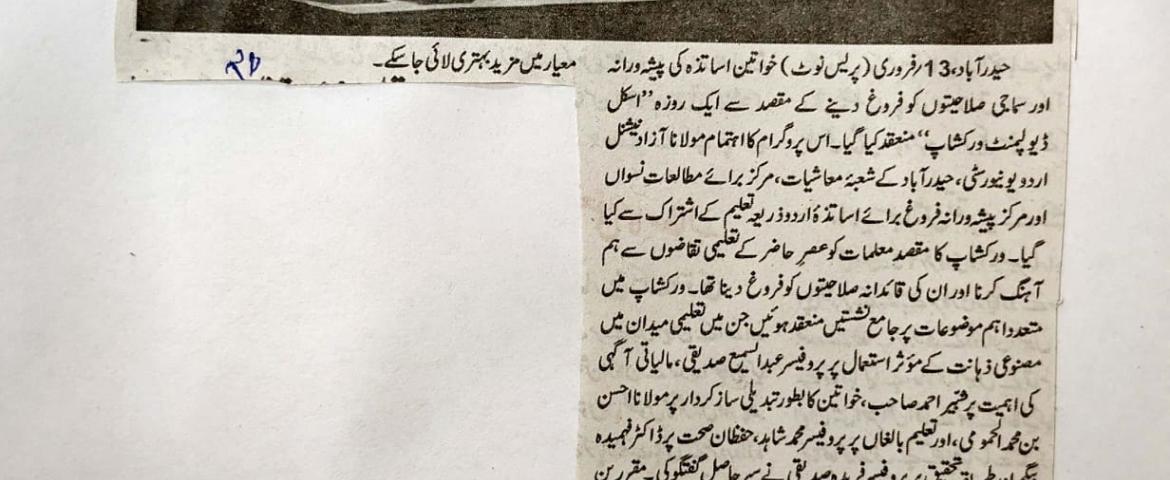 حیدرآباد،13/فروری (پریس نوٹ) خواتین اساتذہ کی پیشہ ورانہ
اور سماجی صلاحیتوں کو فروغ دینے کے مقصد سے ایک روزہ ”اسکل
ڈیولپمنٹ ورکشاپ“ منعقد کیا گیا۔ اس پروگرام کا اہتمام مولانا آزاد نیشنل
اردو یونیورسٹی، حیدرآباد کے شعبۂ معاشیات، مرکز برائے مطالعات نسواں
اور مرکز پیشہ ورانہ فروغ برائے اساتذۂ اردو ذریعہ تعلیم کے اشتراک سے کیا
گیا۔ ورکشاپ کا مقصد معلمات کو عصرِ حاضر کے تعلیمی تقاضوں سے ہم
آہنگ کرنا اور ان کی قائدانہ صلاحیتوں کو فروغ دینا تھا۔ ورکشاپ میں
متعدد اہم موضوعات پر جامع نشستیں منعقد ہوئیں جن میں تعلیمی میدان میں
مصنوعی ذہانت کے مؤثر استعمال پر پروفیسر عبدالسمیع صدیقی، مالیاتی آگہی
کی اہمیت پر شبیر احمد صاحب، خواتین کا بطور تبدیلی ساز کردار پر مولانا احسن
بن محمد الحمومی، اور تعلیم بالغاں پر پروفیسر محمد شاہد، حفظان صحت پر ڈاکٹر فہمیدہ
بیگم اور طریقۂ تحقیق پر پروفیسر فریدہ صدیقی نے سیر حاصل گفتگو کی۔ مقررین
معیار میں مزید بہتری لائی جا سکے۔